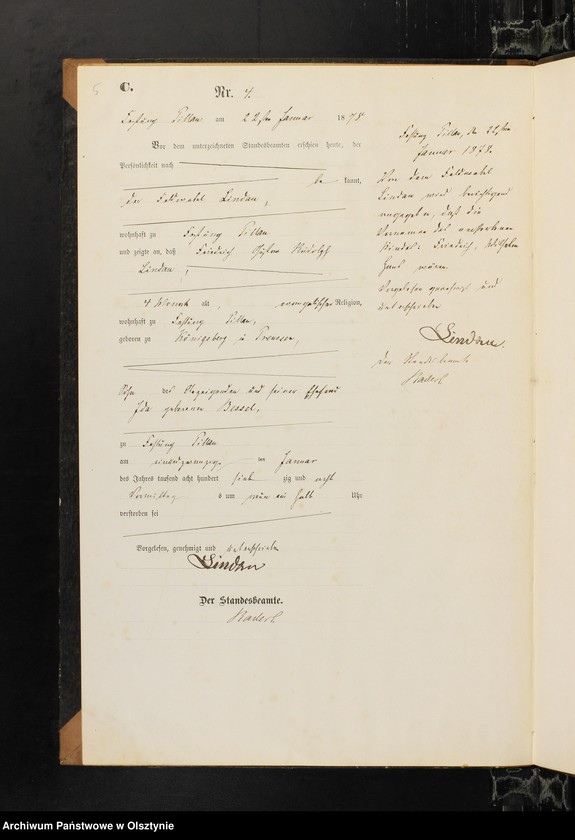 C.
Nr. 4.
Festung Pillau am 22ten Januar 1878
Vor dem unterzeichneten Standesbeamten erschien heute, der
Persönlichkeit nach
be kannt,
der Feldwebel Lindau,
wohnhaft zu Festung Pillau
und zeigte an, daß Friedrich Gustav Rudolph
Lindau,
4 Monat alt, evangelischer Religion,
wohnhaft zu Festung Pillau,
geboren zu Königsberg in Preussen,
Sohn des Anzeigenden und seiner Ehefrau
Ida geborenen Bessel,
zu Festung Pillau
am einundzwanzig ten Januar
des Jahres tausend acht hundert sieb zig und acht
Vormittag s um neun ein halb Uhr
verstorben sei
Vorgelesen, genehmigt und unterschrieben
Lindau
Der Standesbeamte.
Festung Pillau, den 22ten
Januar 1878.
Von dem Feldwebel
Lindau wird berichtigend
angegeben, daß die
Vornamen des verstorbenen
Kindes: Friedrich, Wilhelm
Hans wären.
Vorgelesen genehmigt und
unterschrieben
Lindau.
Der Standesbeamte
Archiwum Państwowe w Olsztynie